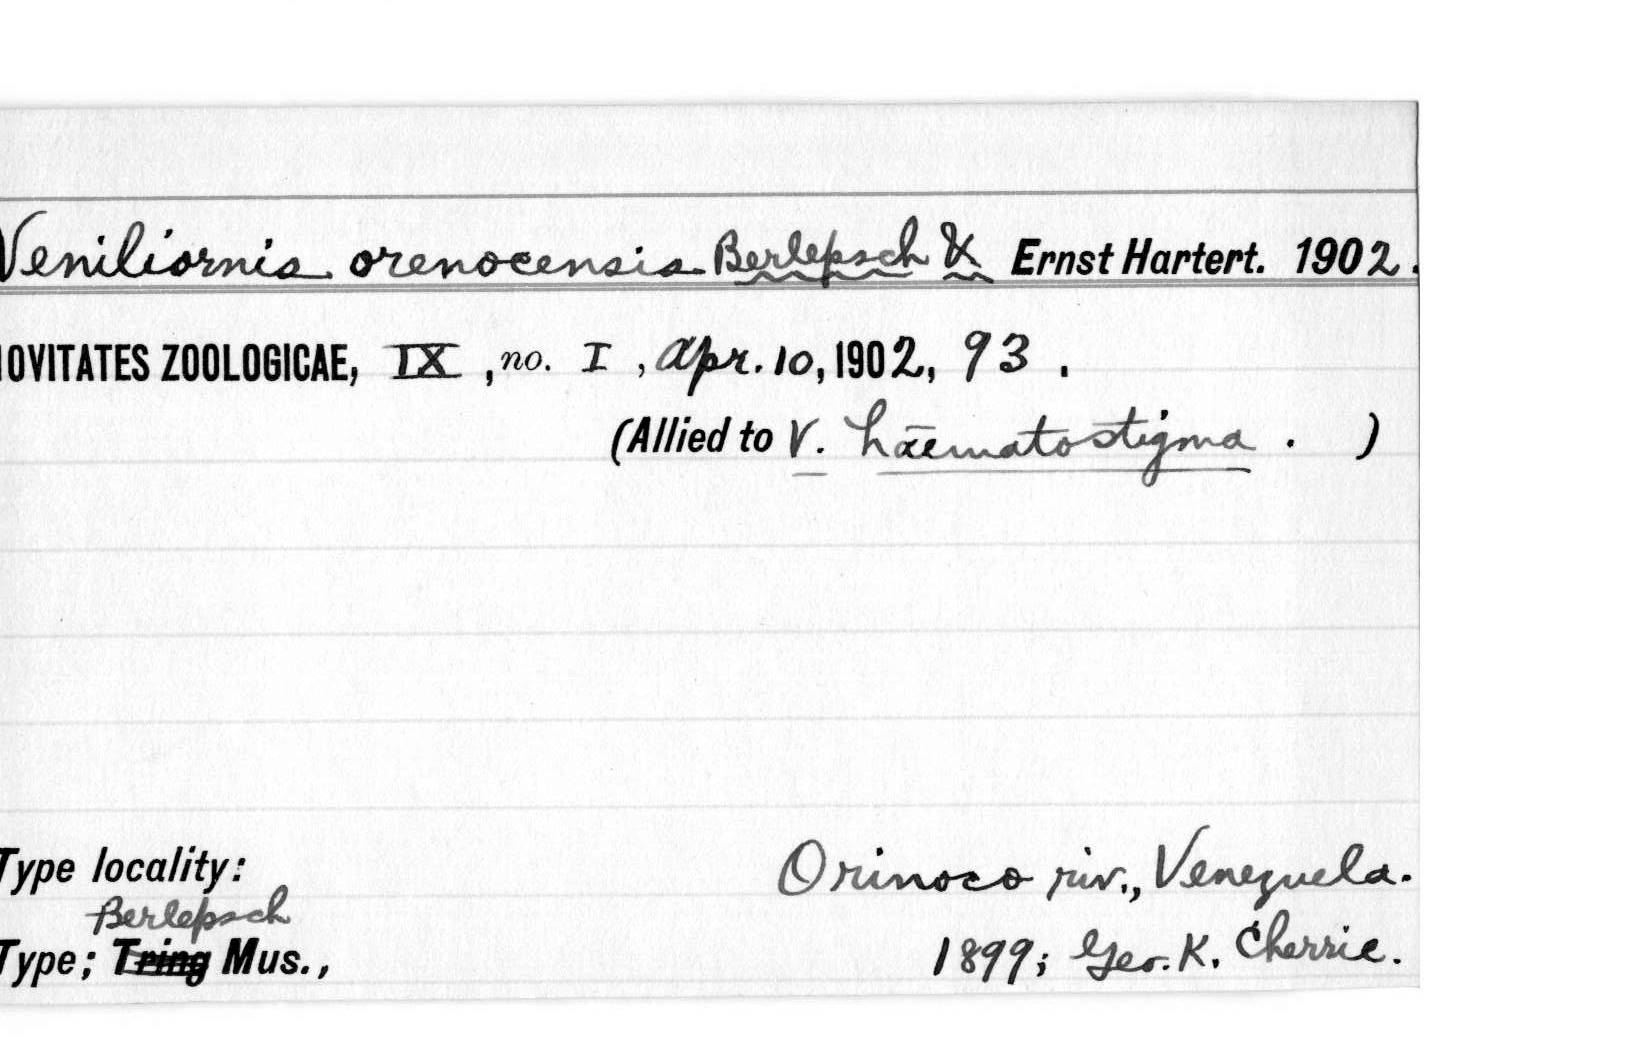 Veniliornis orenocensis Berlepsch & Ernst Hartert. 1902.
OVITATES ZOOLOGICAE, IX, no. I, Apr. 10, 1902, 93.
(Allied to V. haematostigma. )
Type locality: Orinoco riv., Venezuela.
Berlepsch
Type; Tring Mus., 1899; Geo. K. Cherrie.